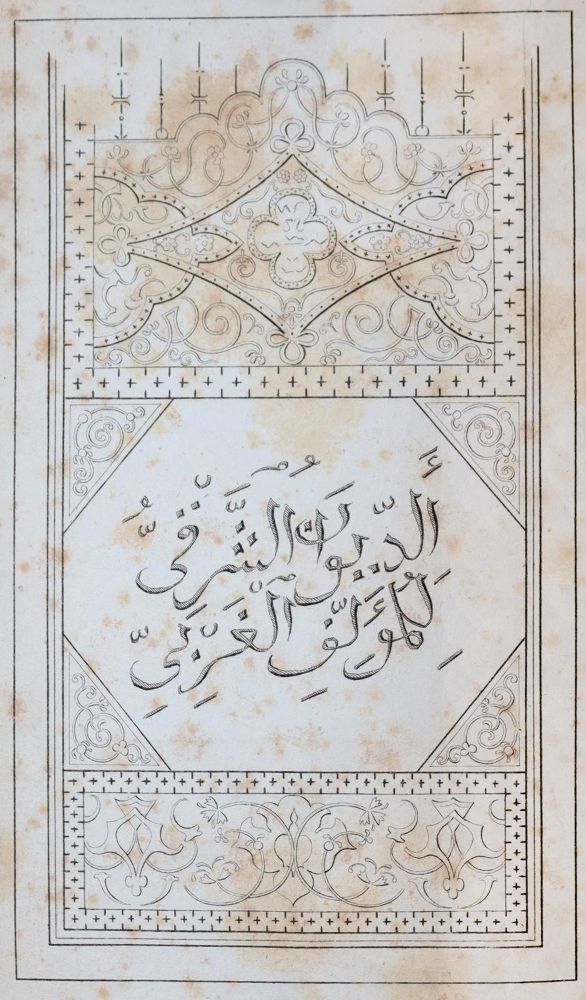 أَلدِّيوَانُ الشَّرْقِيُّ
لِلْمُؤَلِّفِ ٱلْغَرْبِيِّ